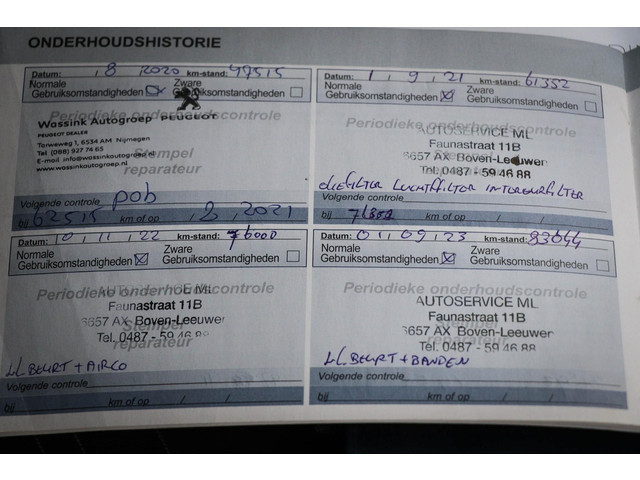 ONDERHOUDSHISTORIE
Datum: , 8 2020 km-stand: 47515
Normale Zware
Gebruiksomstandigheden Gebruiksomstandigheden
Periodieke onderhoudscontrole
Wassink Autogroep PEUGEOT
PEUGEOT DEALER
Tarweweg 1, 6534 AM Nijmegen
Tel (088) 927 74 65
E-mail info@wassinkautogroep.nl
www.wassinkautogroep.nl
Stempel
reparateur
Volgende controle pob
bij 62515 km of op , 8 , 2021
Datum: 1 , 9 , 21 km-stand: 61352
Normale Zware
Gebruiksomstandigheden Gebruiksomstandigheden
Periodieke onderhoudscontrole
AUTOSERVICE ML
Faunastraat 11B
6657 AX Boven-Leeuwen
Tel. 0487 - 59 46 88
reparateur
OLIEFILTER LUCHTFILTER INTERIEURFILTER
Volgende controle
bij km of op / /
Datum: 10 , 11 , 22 km-stand: 76000
Normale Zware
Gebruiksomstandigheden Gebruiksomstandigheden
Periodieke onderhoudscontrole
AUTOSERVICE ML
Faunastraat 11B
6657 AX Boven-Leeuwen
Stempel
Tel. 0487 - 59 46 88
reparateur
kl. BEURT + AIRCO
Volgende controle
bij km of op / /
Datum: 01 , 09 , 23 km-stand: 93644
Normale Zware
Gebruiksomstandigheden Gebruiksomstandigheden
Periodieke onderhoudscontrole
AUTOSERVICE ML
Faunastraat 11B
6657 AX Boven-Leeuwen
Stempel
Tel. 0487 - 59 46 88
reparateur
kl. BEURT + BANDEN
Volgende controle
bij km of op / /